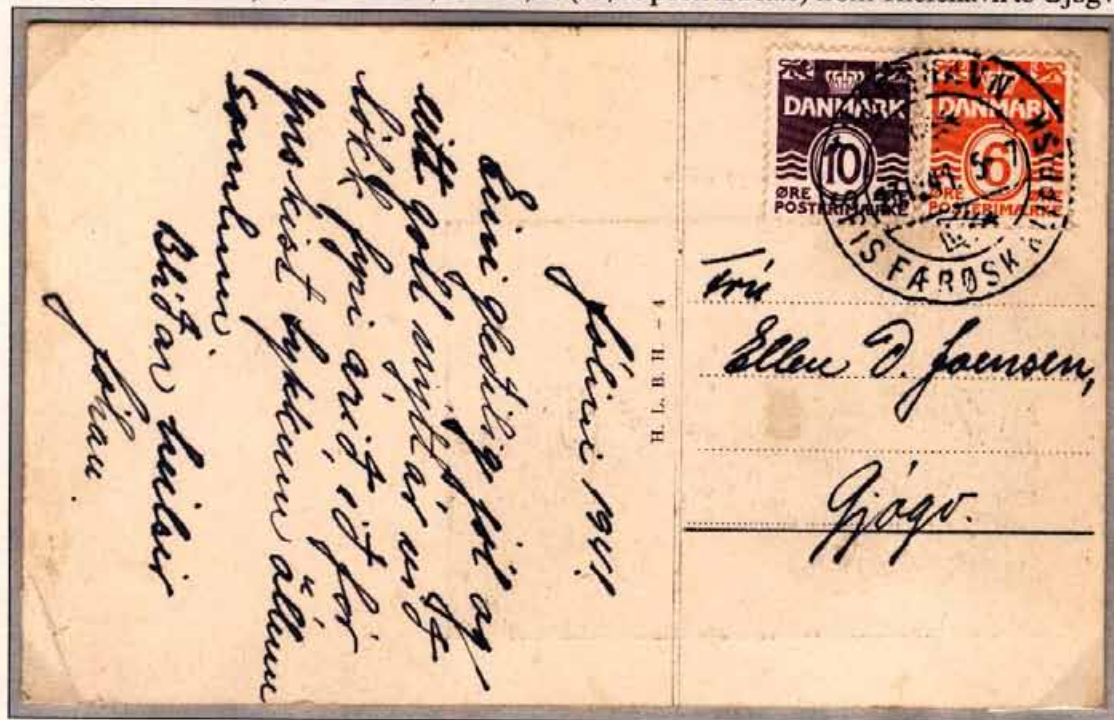 Jólini 1941.
Eini gleðilig jól og
eitt gott nýtt ár við
tökk fyri árið ið fór
ynskist tykkum öllum
somlum.
Blíðar heilsir
Jóhan
H. L. B. H – 4
DANMARK
10
ØRE
POSTFRIMÆRKE
DANMARK
6
ØRE
POSTFRIMÆRKE
FÆRØSK
Frú
Ellen D. Joensen,
Gjógv.